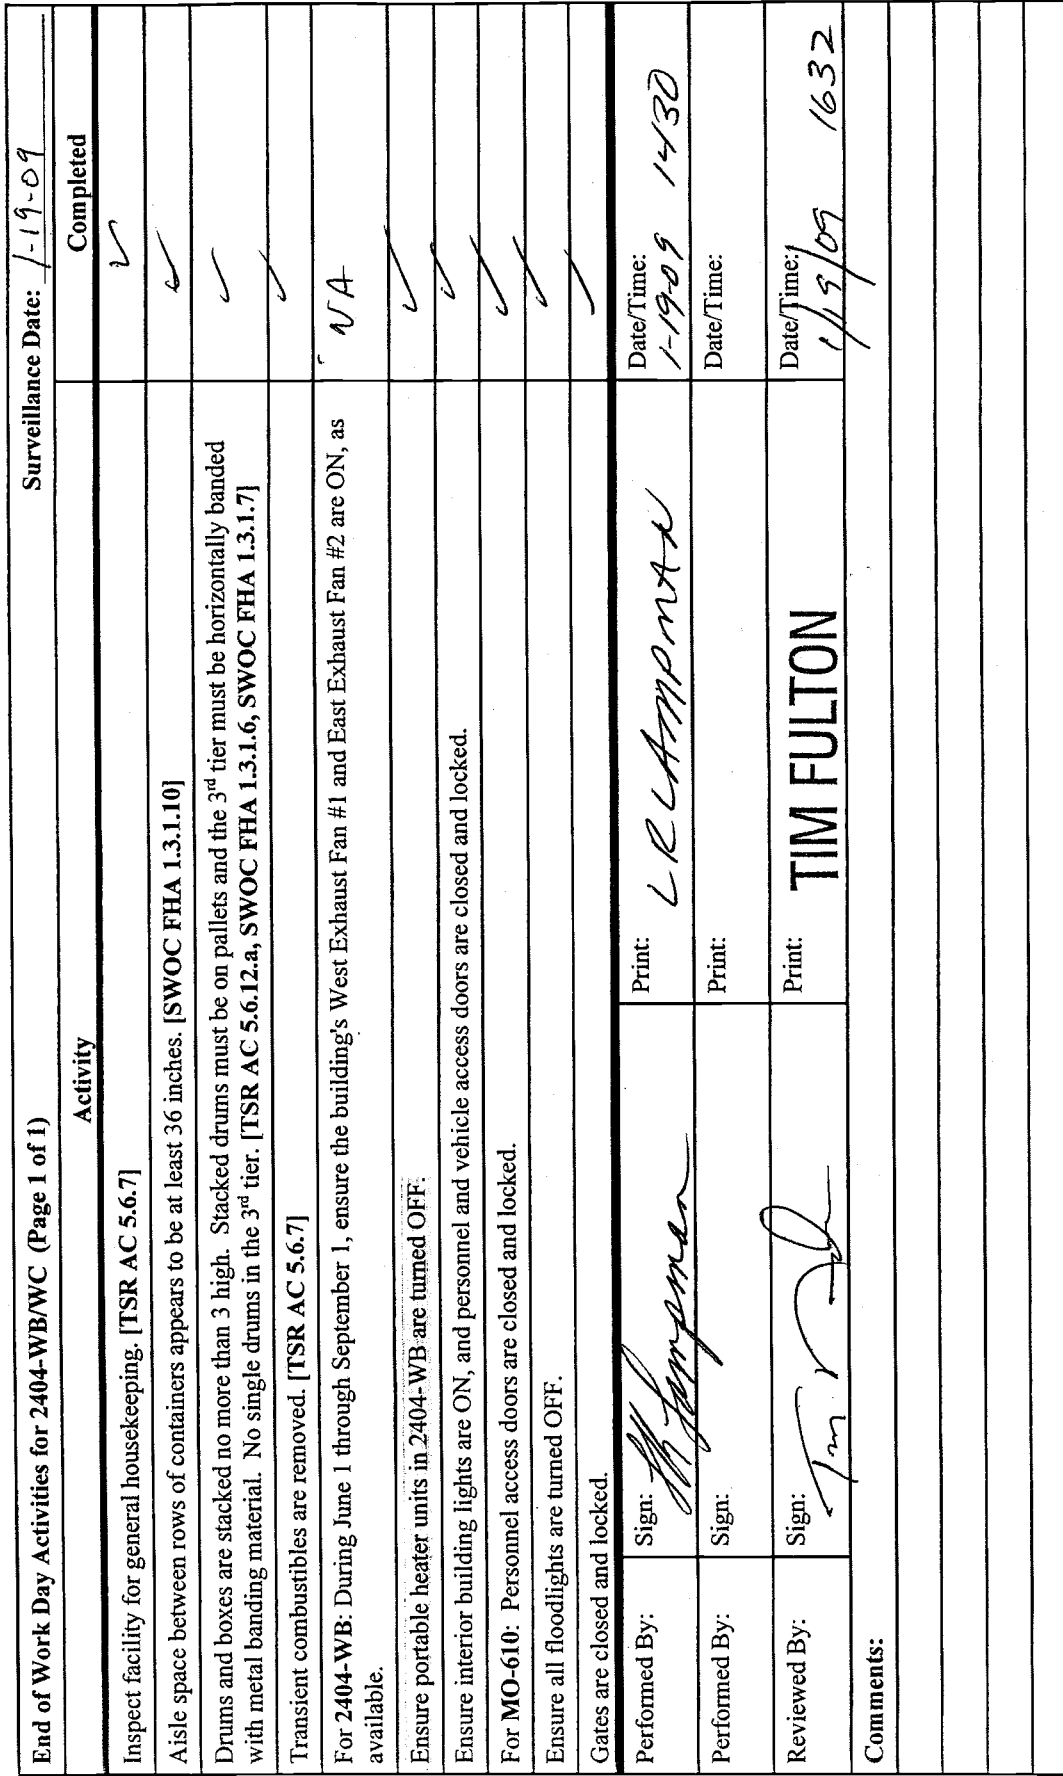 End of Work Day Activities for 2404-WB/WC (Page 1 of 1) Surveillance Date: 1-19-09
Activity Completed
Inspect facility for general housekeeping. [TSR AC 5.6.7] ✓
Aisle space between rows of containers appears to be at least 36 inches. [SWOC FHA 1.3.1.10] ✓
Drums and boxes are stacked no more than 3 high. Stacked drums must be on pallets and the 3rd tier must be horizontally banded
with metal banding material. No single drums in the 3rd tier. [TSR AC 5.6.12.a, SWOC FHA 1.3.1.6, SWOC FHA 1.3.1.7] ✓
Transient combustibles are removed. [TSR AC 5.6.7] ✓
For 2404-WB: During June 1 through September 1, ensure the building's West Exhaust Fan #1 and East Exhaust Fan #2 are ON, as
available. NA
Ensure portable heater units in 2404-WB are turned OFF. ✓
Ensure interior building lights are ON, and personnel and vehicle access doors are closed and locked. ✓
For MO-610: Personnel access doors are closed and locked. ✓
Ensure all floodlights are turned OFF. ✓
Gates are closed and locked. ✓
Performed By: Sign: Print: LR LAMPMAN Date/Time: 1-19-09 1430
Performed By: Sign: Print: Date/Time:
Reviewed By: Sign: Print: TIM FULTON Date/Time: 1/19/09 1632
Comments: